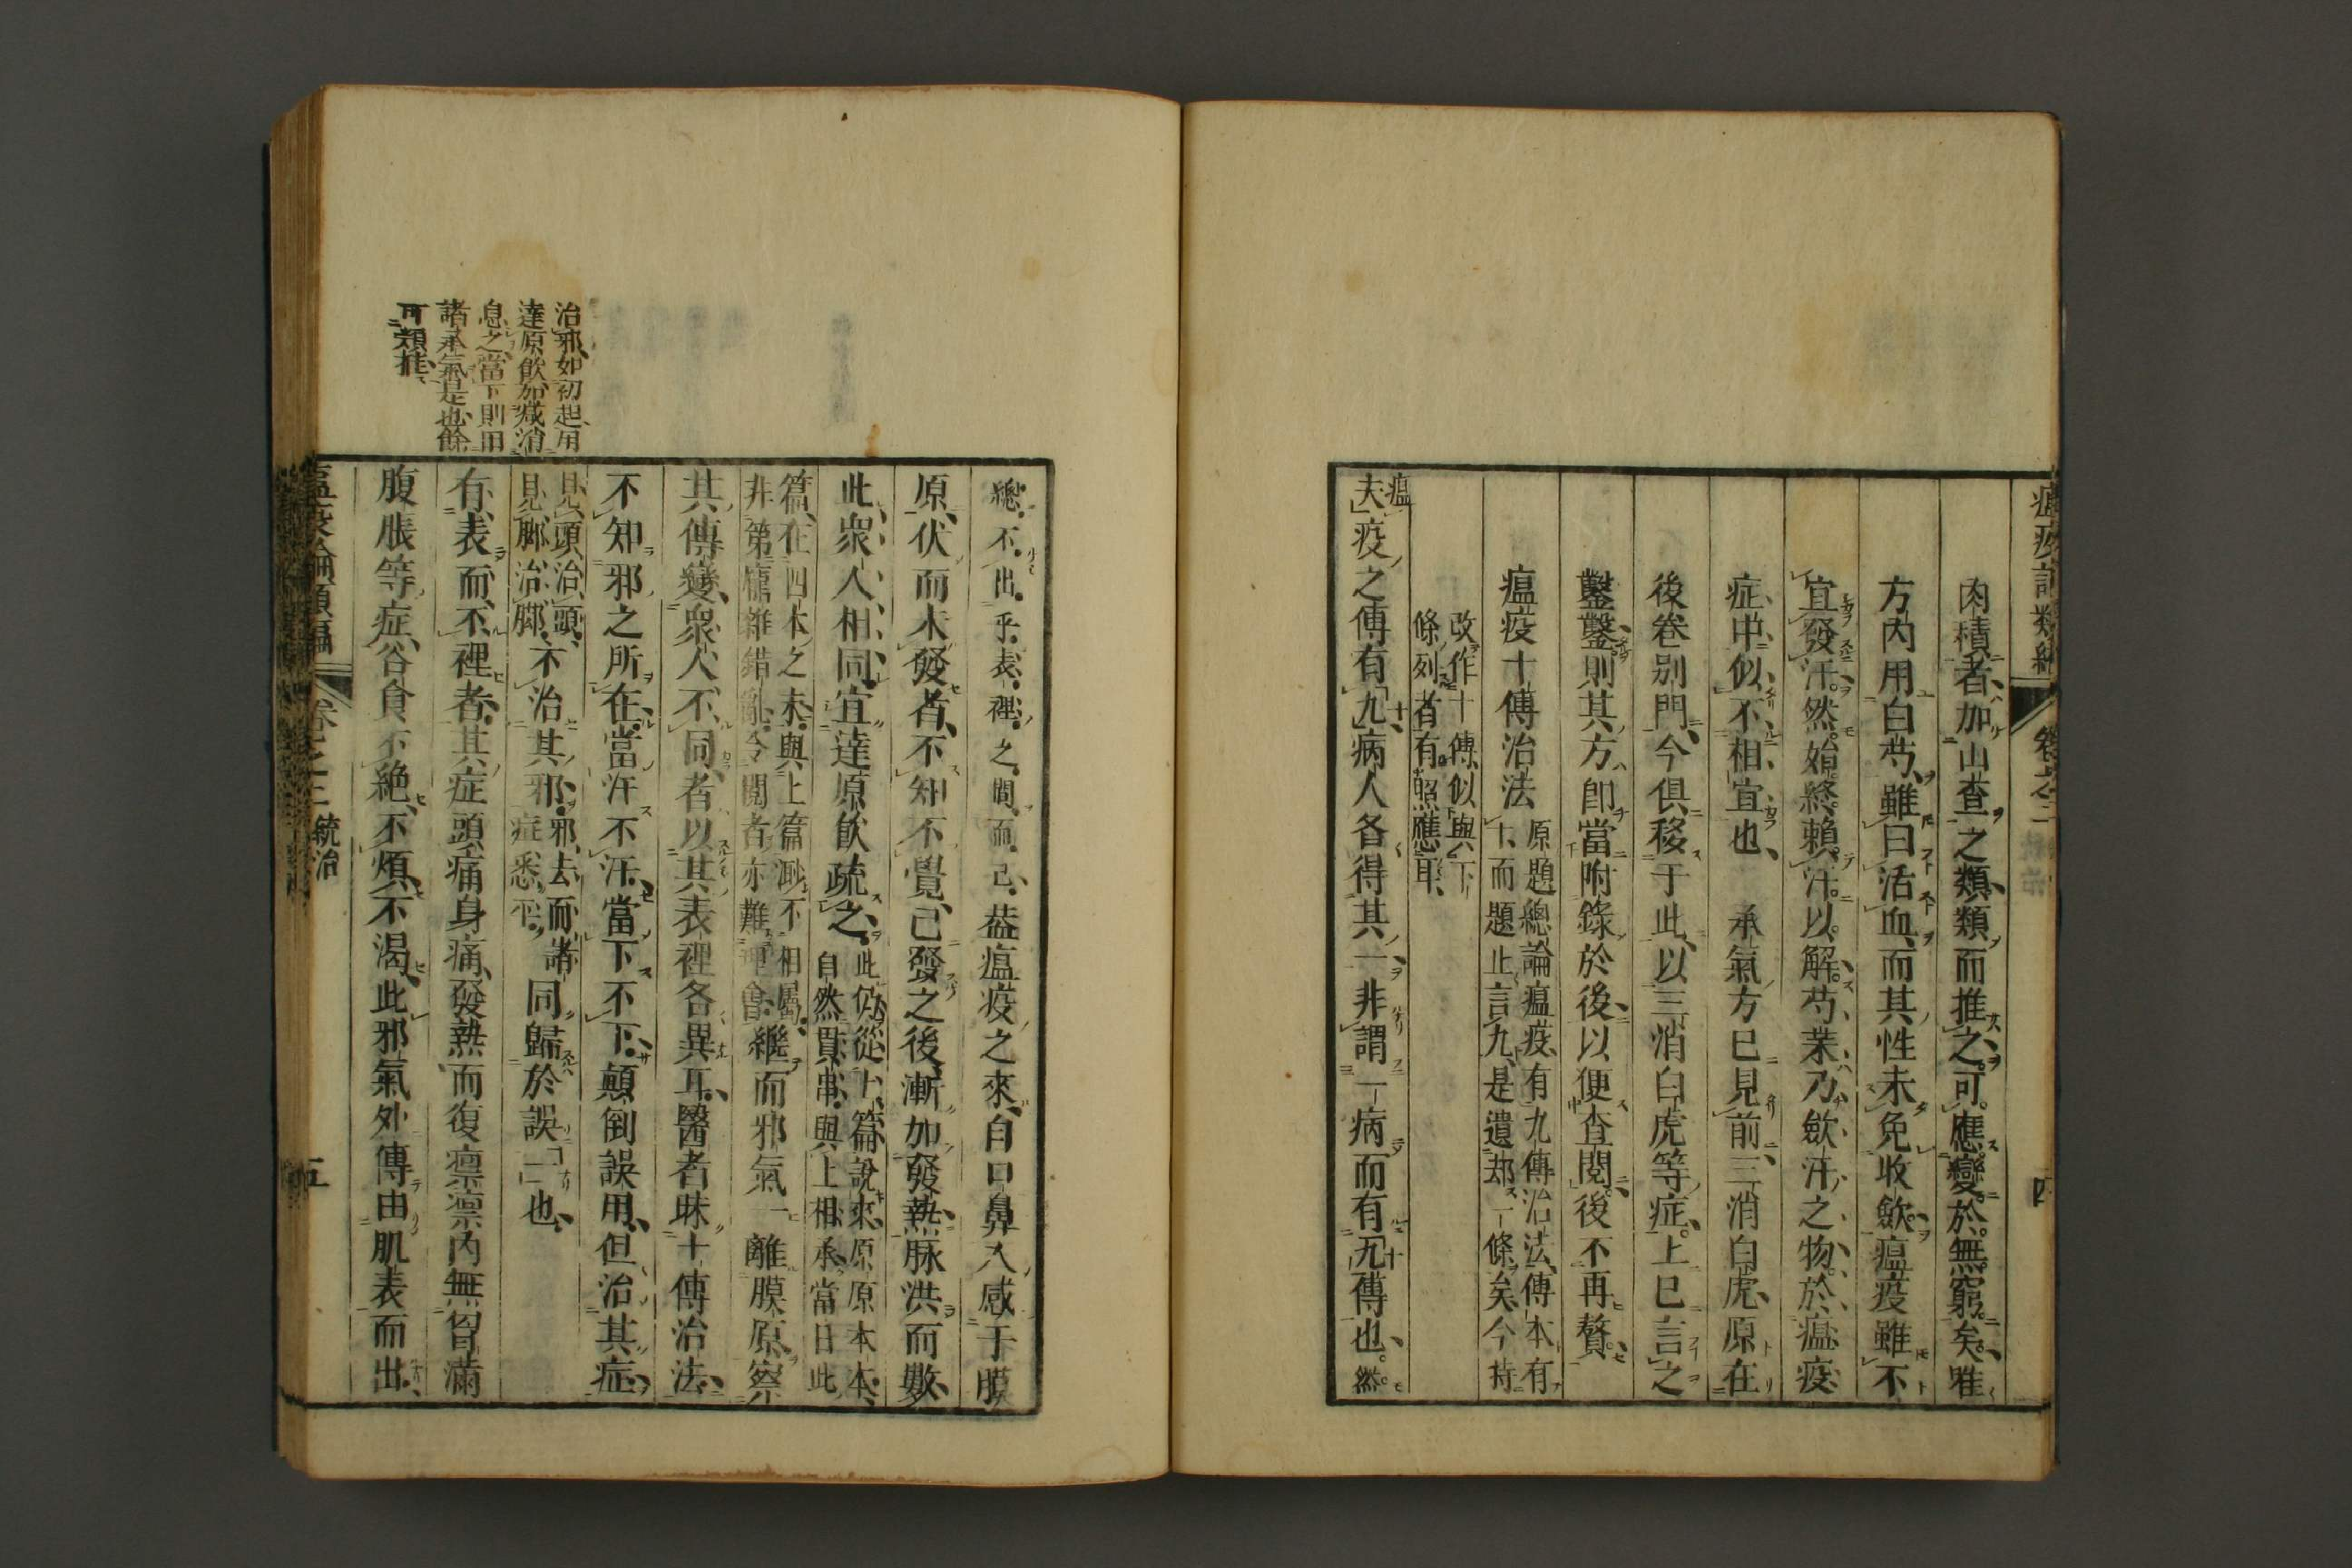 肉積者加山査之類類而推之可應變於無窮矣唯
方內用白芍雖曰活血而其性未免收歛瘟疫雖不
宜發汗然始終賴汗以解芍藥乃歛汗之物於瘟疫
症中似不相宜也　承氣方已見前三消白虎原在
後卷別門今俱移于此以三消白虎等症上已言之
鑿鑿則其方卽當附錄於後以便查閱後不再贅
瘟疫十傳治法
原題總論瘟疫有九傳治法傳本有
十而題止言九是遺却一條矣今特
改作十傳似與下
條列者有照應耳
夫瘟疫之傳有九十病人各得其一非謂一病而有九十傳也然
總不出乎表裡之間而已葢瘟疫之來自口鼻入感于膜
原伏而未發者不知不覺已發之後漸加發熱脉洪而數
此衆人相同宜達原飲疏之
此仍從上篇說來原原本本
自然貫串與上相承當日此
篇在四本之末與上篇渺不相屬
非第龐雜錯亂令閱者亦難理會
繼而邪氣一離膜原察
其傳變衆人不同者以其表裡各異耳醫者昧十傳治法
不知邪之所在當汗不汗當下不下顛倒誤用但治其症
見頭治頭
見脚治脚
不治其邪
邪去而諸
症悉平
同歸於誤一也
有表而不裡者其症頭痛身痛發熱而復凛凛內無胷滿
腹脹等症谷食不絕不煩不渴此邪氣外傳由肌表而出
治邪如初起用
達原飲加减消
息之當下則用
諸承氣是也餘
可類推
瘟疫論類編
卷之二
統治
五
卷之二
四